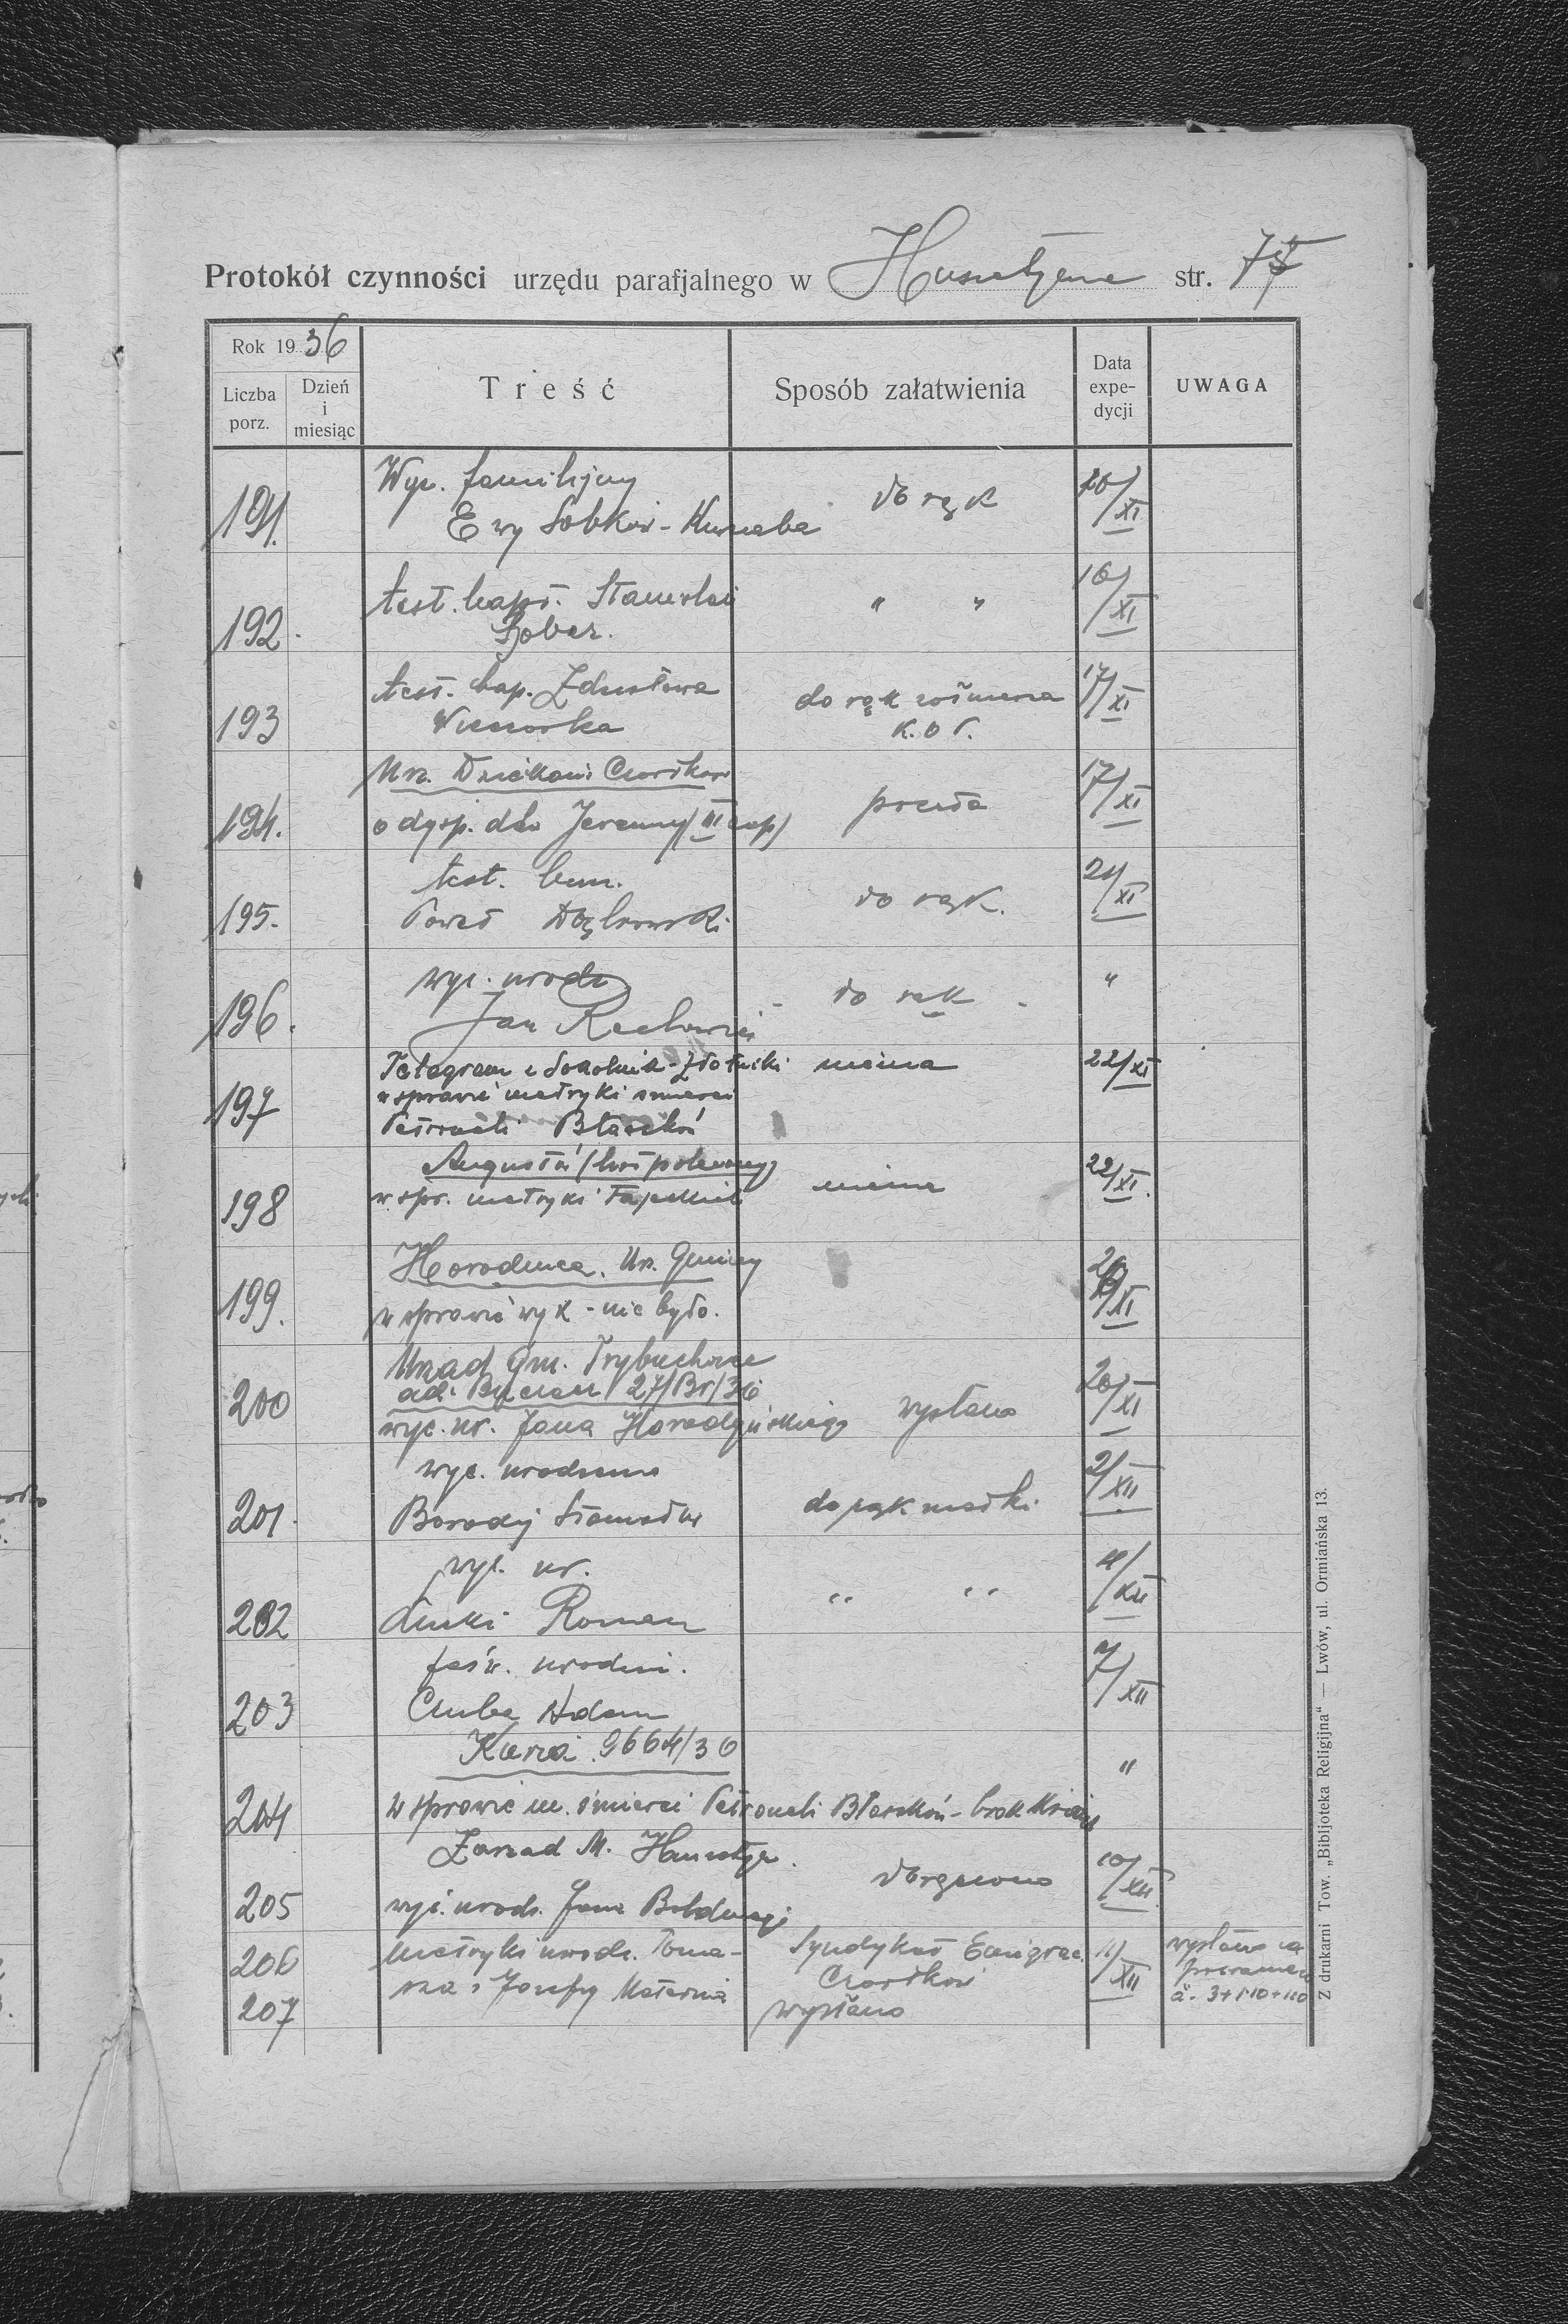 Protokół czynności urzędu parafjalnego w Husiatynie str.
Rok 1936
Liczba porz.
Dzień i miesiąc
Treść
Sposób załatwienia
Data expe-
dycji
UWAGA
191.
Wyc. familijny
Ewy Sobków-
do rąk
XI
192.
test. bapt.
Bober.
" "
16/XI
193
test. bap. Zdzisława
do rąk
K.O.P.
17/XI
194.
Urz. Dziekani Czortków
o dysp. dla Jeremy (III zap)
poczta
17/XI
195.
test. bem.
Paweł Dąbrowski
do rąk.
21/XI
196.
wyc. urodz
Jan
- do rąk -
"
197
Telegram z Sokolnik-Złotniki
w sprawie metryki śmierci
Petroneli Błaszków
niema
22/XI
198
w spr. metryki
niema
22/XI.
199.
Horodnica. Urz. Gminny
w sprawie wyk - nie było.
XI
200
Urząd Gm. Trybuchowce
ad. 27/Br/36
wyc. ur. Jana Horodyńskiego
wysłano
20/XI
201.
wyc. urodzenia
Borodij Stanisław
do rąk matki.
2/XII
202
wyc. ur.
Roman
" "
4/XII
203
św. urodzi.
Czuba Adam
7/XII
204
Kurja 9664/36
w sprawie m. śmierci Petroneli Błaszków - brak
"
205
Zarząd M. Husiatyn.
wyc. urodz. Jana
doręczono
10/XII
206
207
Metryki urodz. Toma-
sza i Józefy Materna
Syndykat Emigrac.
Czortków
wysłano
11/XII
wysłano za
a. 3+1·10+110
Z drukarni Tow. „Bibljoteka Religijna“ — Lwów, ul. Ormiańska 13.